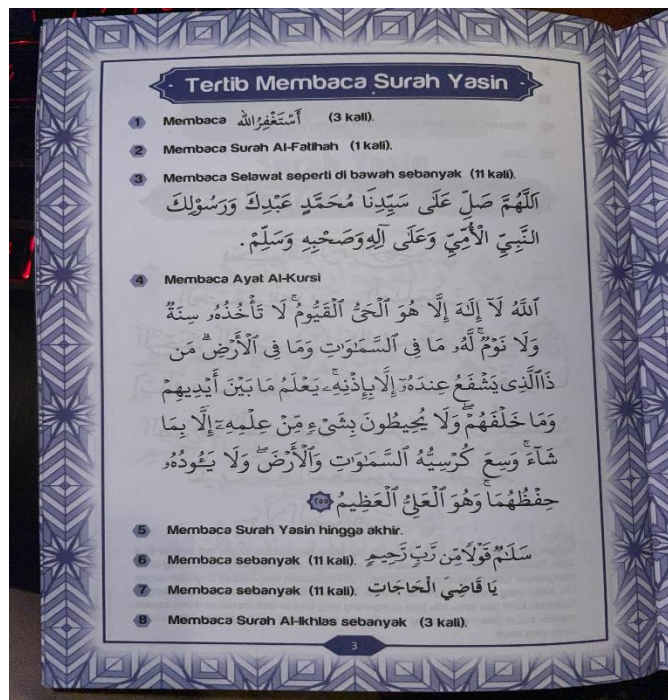 Tertib Membaca Surah Yasin
1 Membaca أَسْتَغْفِرُالله (3 kali).
2 Membaca Surah Al-Fatihah (1 kali).
3 Membaca Selawat seperti di bawah sebanyak (11 kali).
اَللّٰهُمَّ صَلِّ عَلَى سَيِّدِنَا مُحَمَّدٍ عَبْدِكَ وَرَسُوْلِكَ
النَّبِيِّ الْأُمِّيِّ وَعَلَى آلِهِ وَصَحْبِهِ وَسَلِّمْ.
4 Membaca Ayat Al-Kursi
ٱللَّهُ لَآ إِلَٰهَ إِلَّا هُوَ ٱلْحَىُّ ٱلْقَيُّومُ ۚ لَا تَأْخُذُهُۥ سِنَةٌ
وَلَا نَوْمٌ ۚ لَّهُۥ مَا فِى ٱلسَّمَٰوَٰتِ وَمَا فِى ٱلْأَرْضِ ۗ مَن
ذَا ٱلَّذِى يَشْفَعُ عِندَهُۥٓ إِلَّا بِإِذْنِهِۦ ۚ يَعْلَمُ مَا بَيْنَ أَيْدِيهِمْ
وَمَا خَلْفَهُمْ ۖ وَلَا يُحِيطُونَ بِشَىْءٍ مِّنْ عِلْمِهِۦٓ إِلَّا بِمَا
شَآءَ ۚ وَسِعَ كُرْسِيُّهُ ٱلسَّمَٰوَٰتِ وَٱلْأَرْضَ ۖ وَلَا يَـُٔودُهُۥ
حِفْظُهُمَا ۚ وَهُوَ ٱلْعَلِىُّ ٱلْعَظِيمُ ٢٥٥
5 Membaca Surah Yasin hingga akhir.
6 Membaca sebanyak (11 kali). سَلَٰمٌ قَوْلًا مِّن رَّبٍّ رَّحِيمٍ
7 Membaca sebanyak (11 kali). يَا قَاضِيَ الْحَاجَاتِ
8 Membaca Surah Al-Ikhlas sebanyak (3 kali).
3